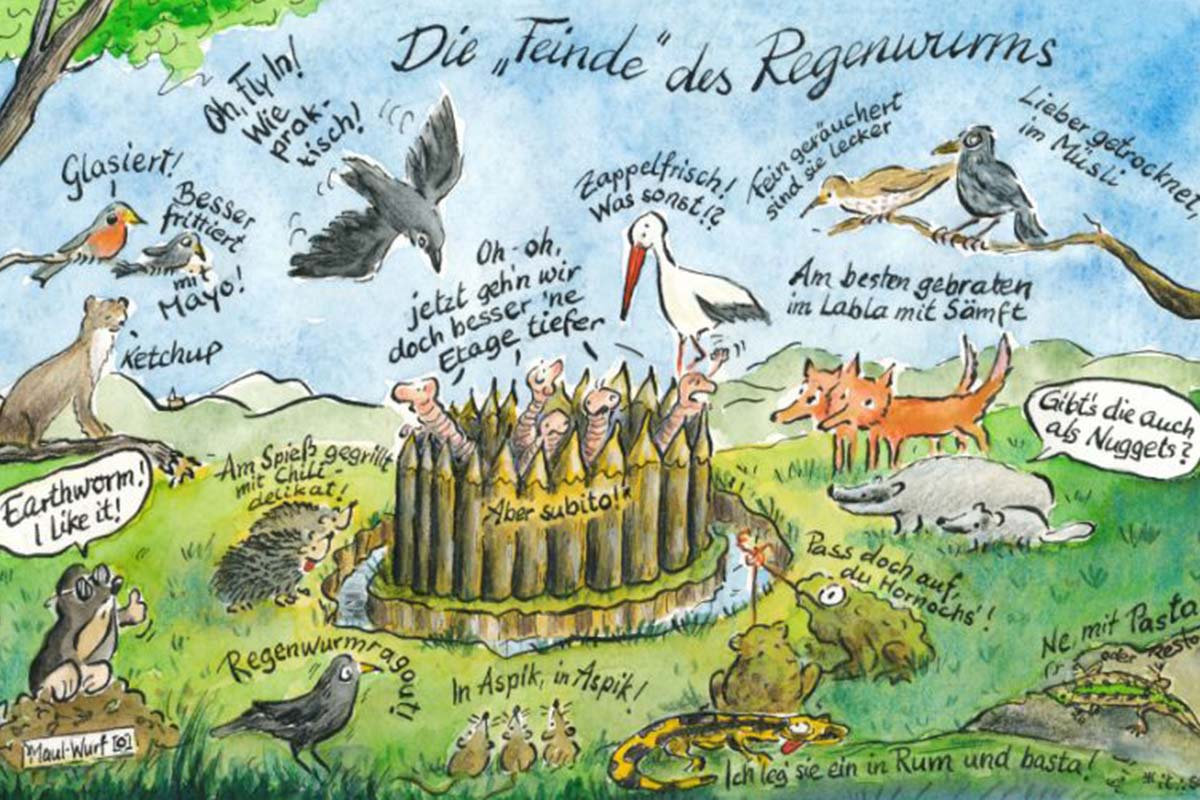 Die „Feinde“ des Regenwurms
Oh, Fly In!
Wie
prak-
tisch!
Glasiert!
Besser
frittiert
mit
Mayo!
Ketchup
Zappelfrisch!
Was sonst!?
Fein geräuchert
sind sie lecker
Lieber getrocknet,
im Müsli
Oh-oh,
jetzt geh'n wir
doch besser 'ne
Etage tiefer
Am besten gebraten
im Labla mit Sämft
Gibt's die auch
als Nuggets?
Earthworm!
I like it!
Am Spieß gegrillt
mit Chili-
delikat!
"Aber subito!"
Pass doch auf,
du Hornochs'!
Ne, mit Pasta
oder
Regenwurmragout!
In Aspik, in Aspik!
Maul-Wurf [o]
Ich leg' sie ein in Rum und basta!